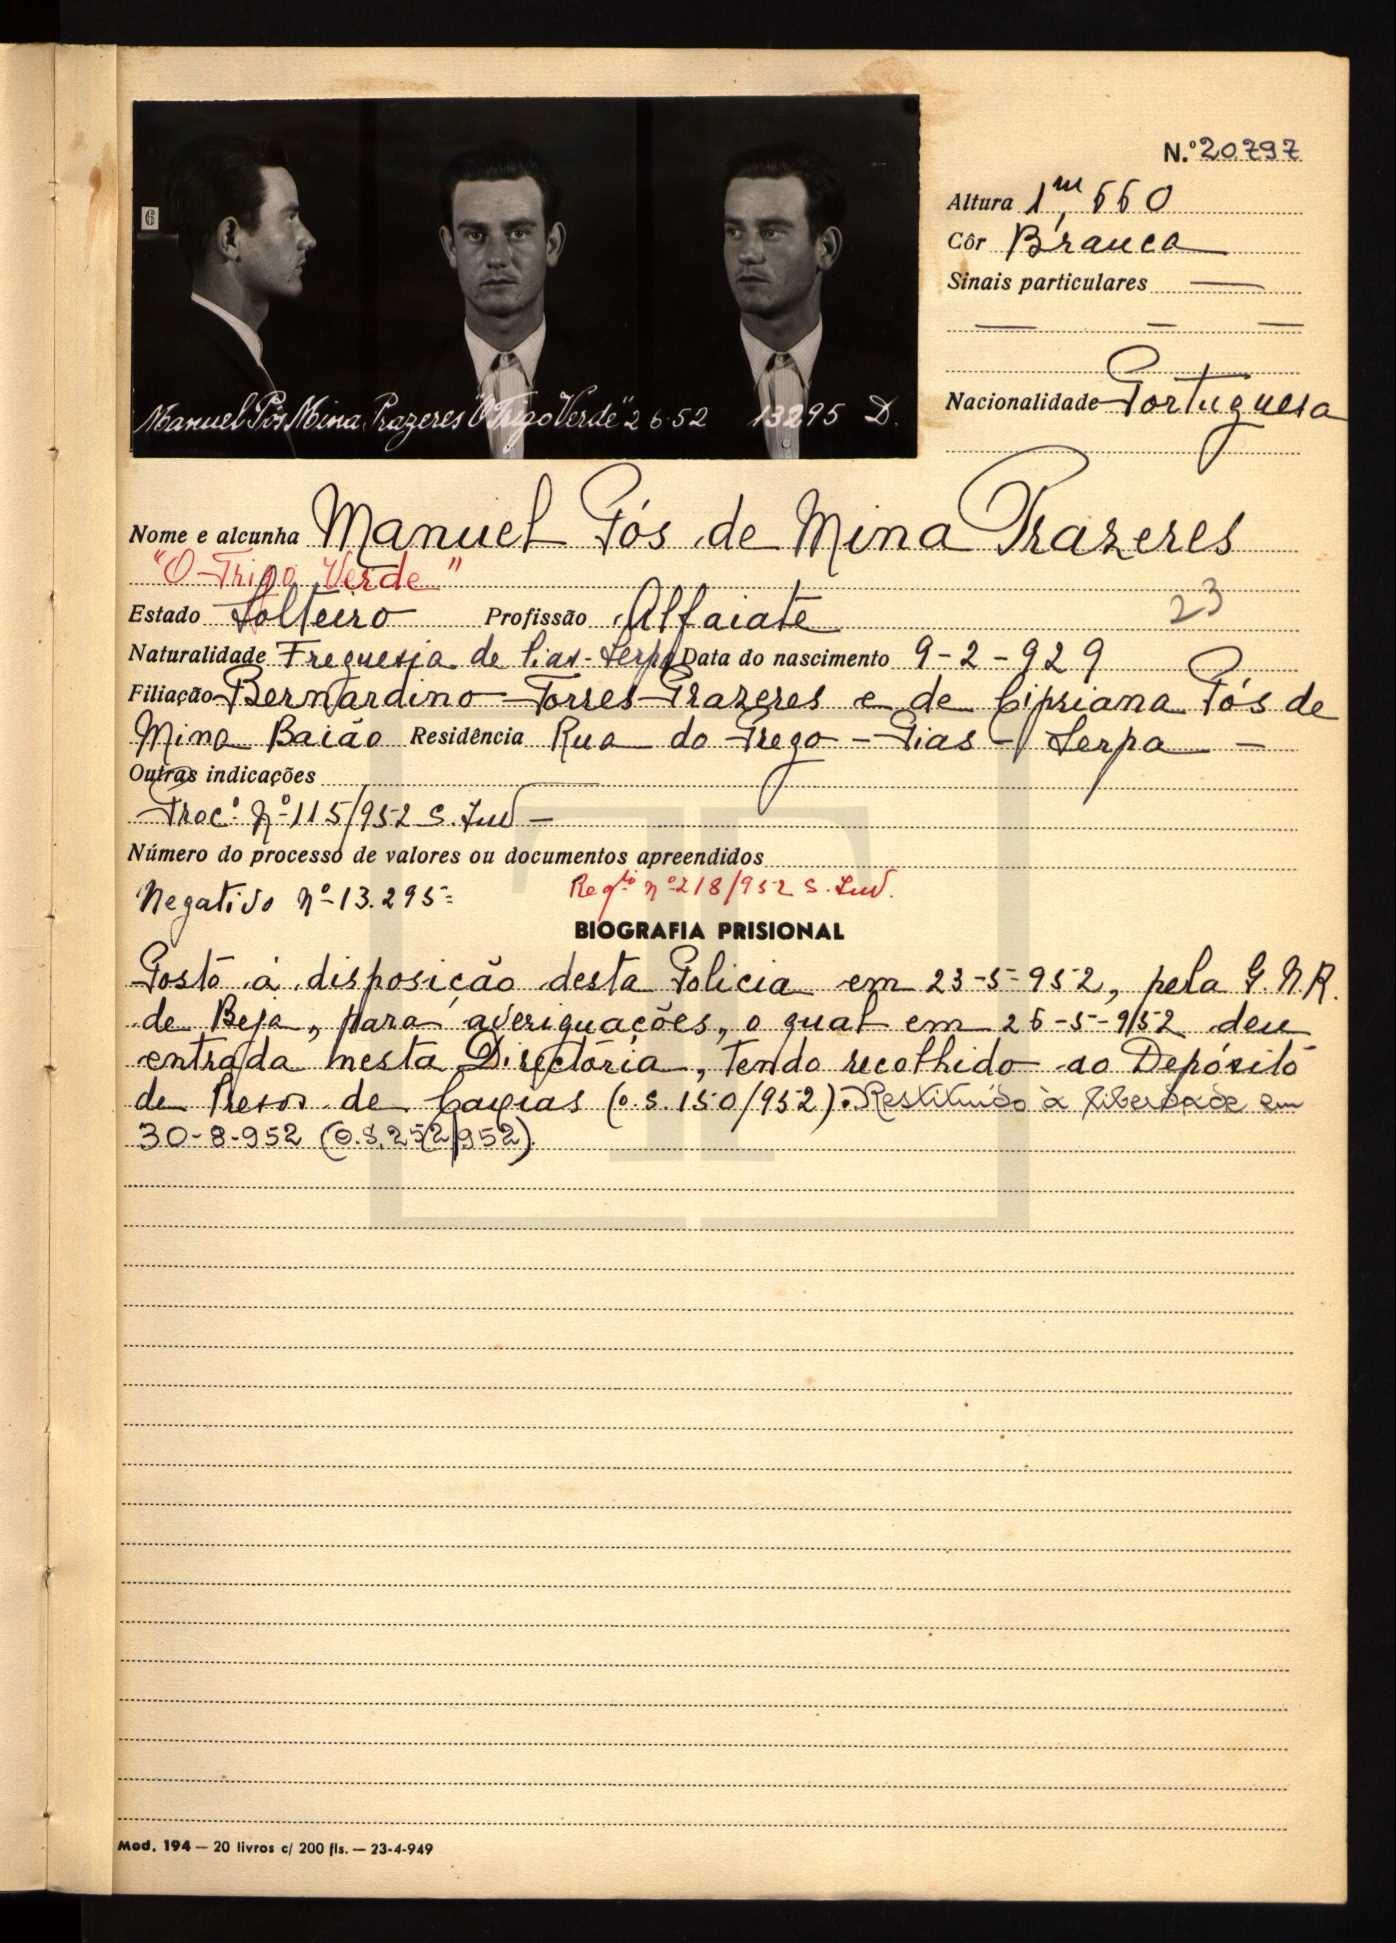 N.º 20797
6
Altura 1,m 660
Côr Branca
Sinais particulares —
— — —
Nacionalidade Portuguesa
Manuel Pós Mina Prazeres "O Trigo Verde" 2 6 52 13295 D.
Nome e alcunha Manuel Pós de Mina Prazeres
"O Trigo Verde"
Estado Solteiro Profissão Alfaiate 23
Naturalidade Freguesia de Pias - Serpa Data do nascimento 9-2-929
Filiação Bernardino Torres Prazeres e de Cipriana Pós de
Mina Baião Residência Rua do Prego - Pias - Serpa -
Outras indicações
Proc.º Nº 115/952 S. Ind -
Número do processo de valores ou documentos apreendidos
Negativo Nº 13.295= Regto nº 218/952 S. Ind.
BIOGRAFIA PRISIONAL
Posto á disposição desta Policia em 23-5-952, pela G.N.R.
de Beja, para averiguações, o qual em 26-5-952 deu
entrada nesta Directória, tendo recolhido ao Depósito
de Presos de Caxias (o.s. 150/952). Restituído à liberdade em
30-8-952 (O.S. 252/952).
Mod. 194 — 20 livros c/ 200 fls. — 23-4-949